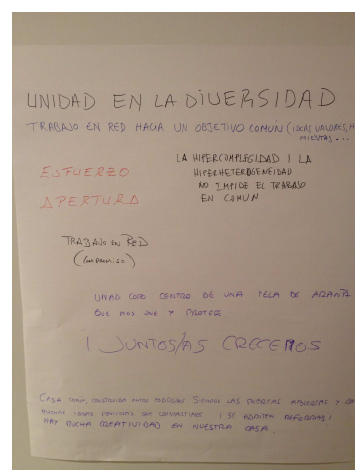 UNIDAD EN LA DIVERSIDAD
TRABAJO EN RED HACIA UN OBJETIVO COMÚN (IDEAS, VALORES, H
MIENTAS...
ESFUERZO
APERTURA
LA HIPERCOMPLEJIDAD I LA
HIPERHETEROGENEIDAD
NO IMPIDE EL TRABAJO
EN COMUN
TRABAJO EN RED
(COMPROMISO)
UNAD COMO CENTRO DE UNA TELA DE ARAÑA
QUE NOS UNE Y PROTEGE
¡ JUNTOS/AS CRECEMOS
CASA COMÚN, CONSTRUIDA ENTRE TODOS/AS SIEMPRE LAS PUERTAS ABIERTAS Y CON
MUCHAS SER I SE ADMITEN REFORMAS!
HAY MUCHA CREATIVIDAD EN NUESTRA CASA.